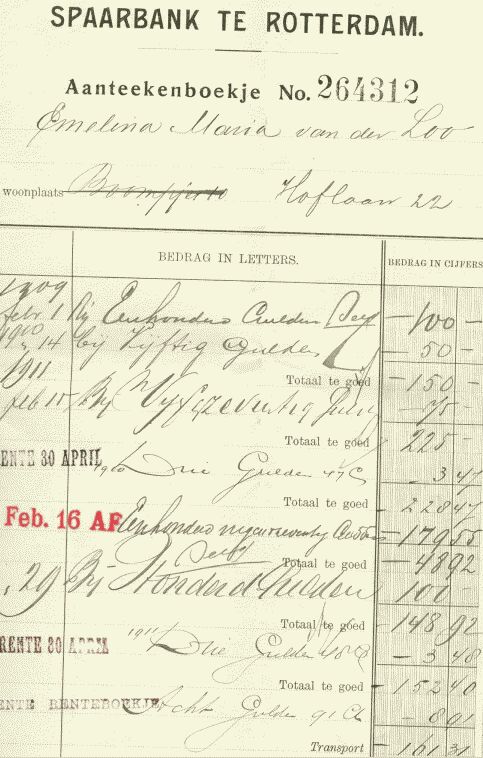 SPAARBANK TE ROTTERDAM.
Aanteekenboekje No. 264312
Emelina Maria van der Loo
woonplaats Boompjes 10 Hoflaan 22
BEDRAG IN LETTERS. BEDRAG IN CIJFERS
1909
febr. 1 Bij Eenhonderd Gulden - 100 -
1910
14 bij Vijftig Gulden - 50 -
1911 Totaal te goed - 150 -
feb 15 Bij Vijf & zeventig - 75 -
Totaal te goed 225 -
ENTE 30 APRIL 1910 Drie Gulden 47 C - 3 47
Totaal te goed 228 47
Feb. 16 AF Eenhonderd negenenzeventig - 179 55
Totaal te goed - 48 92
29 Bij Honderd Gulden 100 -
Totaal te goed - 148 92
RENTE 30 APRIL 1911 Drie Gulden 48 C - 3 48
Totaal te goed - 152 40
ENTE RENTEBOEKJE Acht Gulden 91 Ct - 8 91
Transport - 161 31